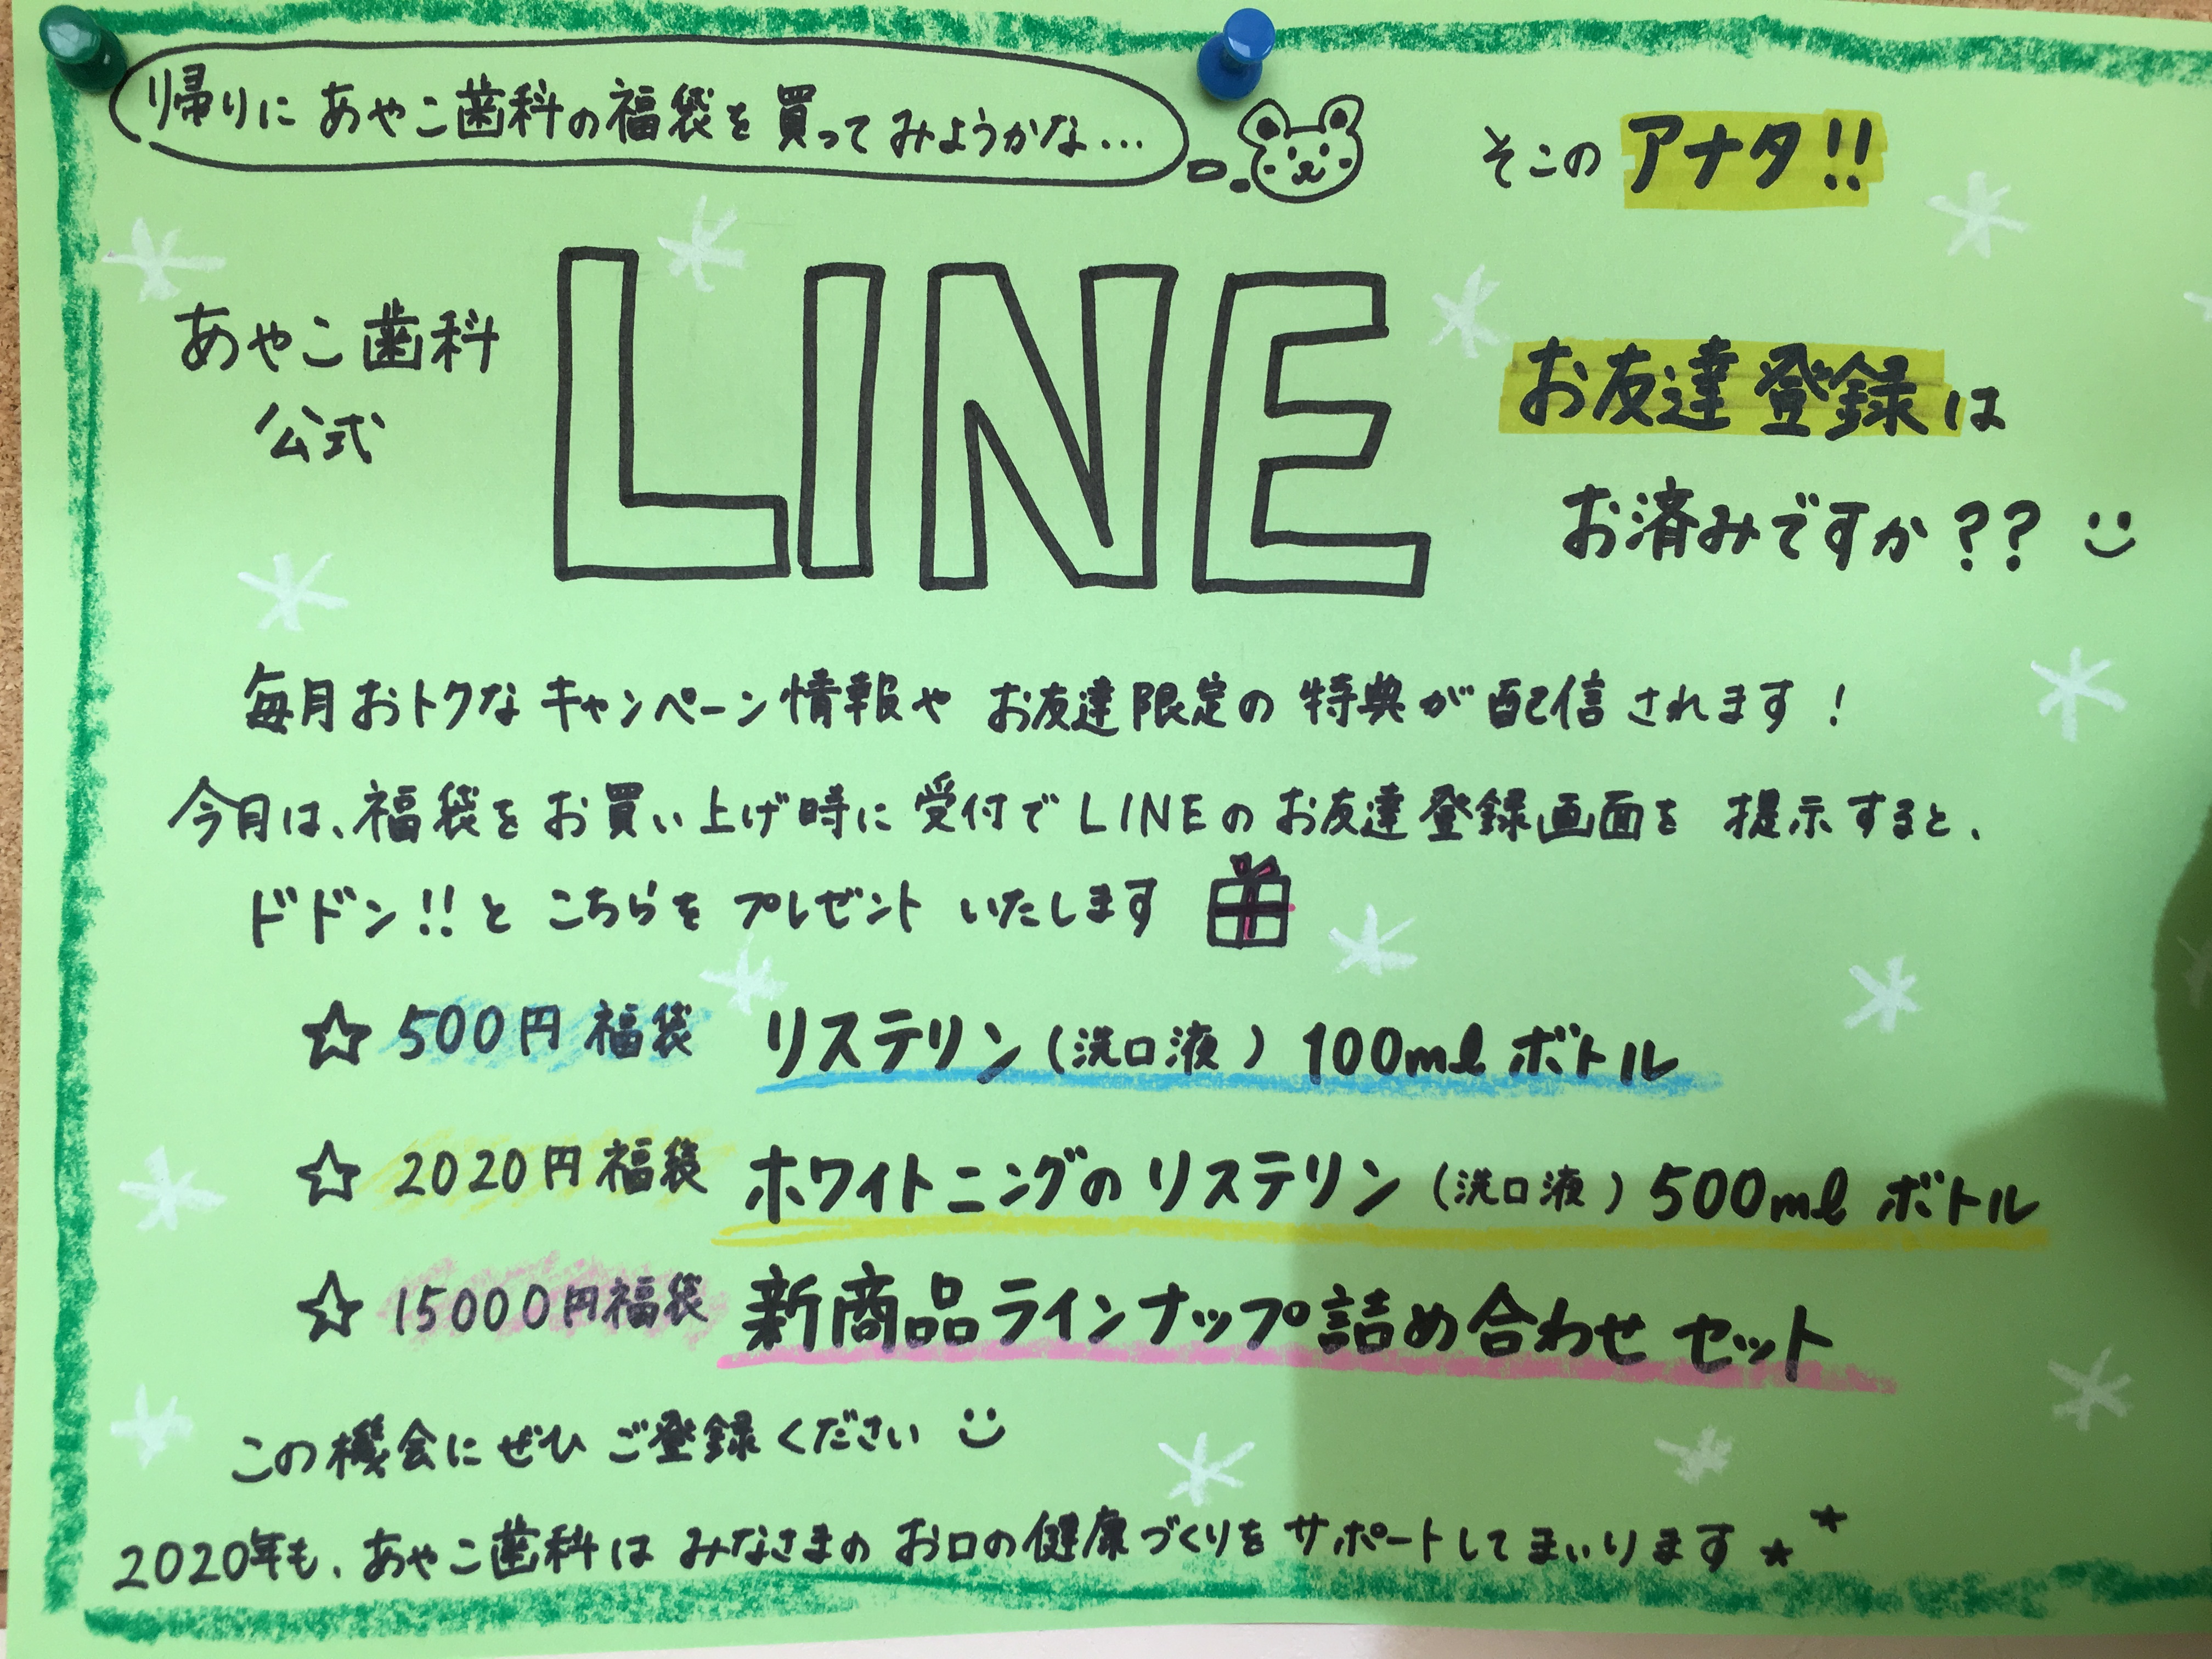 帰りに あやこ歯科の福袋を 買ってみようかな...
そこの アナタ!!
あやこ歯科
公式
LINE
お友達登録は
お済みですか??
毎月おトクな キャンペーン情報や お友達限定の 特典が 配信されます!
今月は、福袋を お買い上げ時に 受付で LINEの お友達登録画面を 提示すると、
ドドン!!と こちらを プレゼント いたします
☆ 500円 福袋 リステリン (洗口液) 100ml ボトル
☆ 2020円 福袋 ホワイトニングの リステリン (洗口液) 500ml ボトル
☆ 15000円福袋 新商品ラインナップ詰め合わせ セット
この機会に ぜひ ご登録ください
2020年も、あやこ歯科は みなさまの お口の健康づくりを サポートしてまいります★★